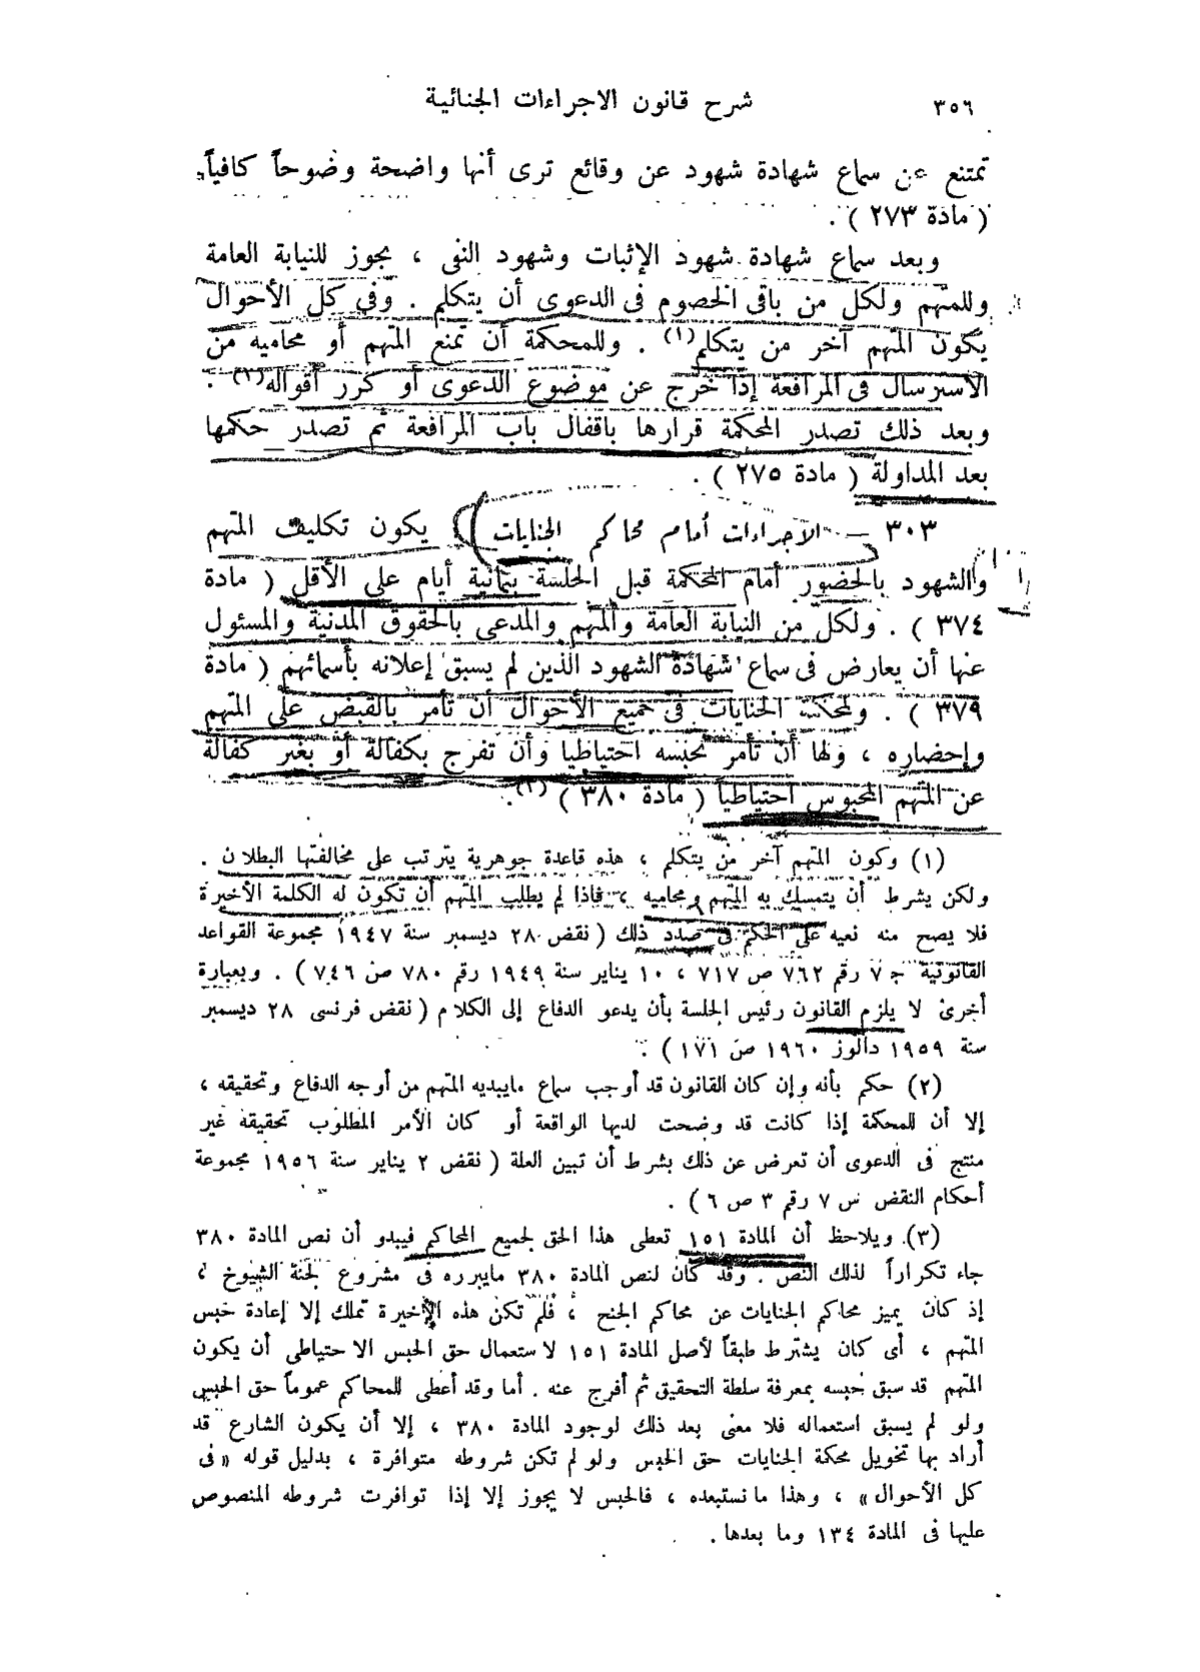 ٣٥٦ شرح قانون الاجراءات الجنائية
تمتنع عن سماع شهادة شهود عن وقائع ترى أنها واضحة وضوحاً كافياً
( مادة ٢٧٣ ) .
وبعد سماع شهادة شهود الإثبات وشهود النفى ، يجوز للنيابة العامة
وللمتهم ولكل من باقى الخصوم فى الدعوى أن يتكلم . وفى كل الأحوال
يكون المتهم آخر من يتكلم (١) . وللمحكمة أن تمنع المتهم أو محاميه من
الاسترسال فى المرافعة إذا خرج عن موضوع الدعوى أو كرر أقواله (٢) .
وبعد ذلك تصدر المحكمة قرارها باقفال باب المرافعة ثم تصدر حكمها
بعد المداولة ( مادة ٢٧٥ ) .
٣٠٣ — الاجراءات أمام محاكم الجنايات ) يكون تكليف المتهم
والشهود بالحضور أمام المحكمة قبل الجلسة بثمانية أيام على الأقل ( مادة
٣٧٤ ) . ولكل من النيابة العامة والمتهم والمدعى بالحقوق المدنية والمسئول
عنها أن يعارض فى سماع شهادة الشهود الذين لم يسبق إعلانه بأسمائهم ( مادة
٣٧٩ ) . ولمحكمة الجنايات فى جميع الأحوال أن تأمر بالقبض على المتهم
وإحضاره ، ولها أن تأمر بحبسه احتياطيا وأن تفرج بكفالة أو بغير كفالة
عن المتهم المحبوس احتياطيا ( مادة ٣٨٠ ) (٣) .
(١) وكون المتهم آخر من يتكلم ، هذه قاعدة جوهرية يترتب على مخالفتها البطلان .
ولكن يشرط أن يتمسك به المتهم ومحاميه ، فاذا لم يطلب المتهم أن تكون له الكلمة الأخيرة
فلا يصح منه نعيه على الحكم فى صدد ذلك ( نقض ٢٨ ديسمبر سنة ١٩٤٧ مجموعة القواعد
القانونية ج ٧ رقم ٧٦٢ ص ٧١٧ ، ١٠ يناير سنة ١٩٤٩ رقم ٧٨٠ ص ٧٤٦ ) . وبعبارة
أخرى لا يلزم القانون رئيس الجلسة بأن يدعو الدفاع إلى الكلام ( نقض فرنسى ٢٨ ديسمبر
سنة ١٩٥٩ دالوز ١٩٦٠ ص ١٧١ ) .
(٢) حكم بأنه وإن كان القانون قد أوجب سماع مايبديه المتهم من أوجه الدفاع وتحقيقه ،
إلا أن للمحكمة إذا كانت قد وضحت لديها الواقعة أو كان الأمر المطلوب تحقيقه غير
منتج فى الدعوى أن تعرض عن ذلك بشرط أن تبين العلة ( نقض ٢ يناير سنة ١٩٥٦ مجموعة
أحكام النقض س ٧ رقم ٣ ص ٦ ) .
(٣) ويلاحظ أن المادة ١٥١ تعطى هذا الحق لجميع المحاكم فيبدو أن نص المادة ٣٨٠
جاء تكراراً لذلك النص . وقد كان لنص المادة ٣٨٠ مايبرره فى مشروع لجنة الشيوخ ،
إذ كان يميز محاكم الجنايات عن محاكم الجنح ، فلم تكن هذه الأخيرة تملك إلا إعادة حبس
المتهم ، أى كان يشترط طبقاً لأصل المادة ١٥١ لاستعمال حق الحبس الاحتياطى أن يكون
المتهم قد سبق حبسه بمعرفة سلطة التحقيق ثم أفرج عنه . أما وقد أعطى للمحاكم عموماً حق الحبس
ولو لم يسبق استعماله فلا معنى بعد ذلك لوجود المادة ٣٨٠ ، إلا أن يكون الشارع قد
أراد بها تخويل محكمة الجنايات حق الحبس ولو لم تكن شروطه متوافرة ، بدليل قوله « فى
كل الأحوال » ، وهذا مانستبعده ، فالحبس لا يجوز إلا إذا توافرت شروطه المنصوص
عليها فى المادة ١٣٤ وما بعدها .